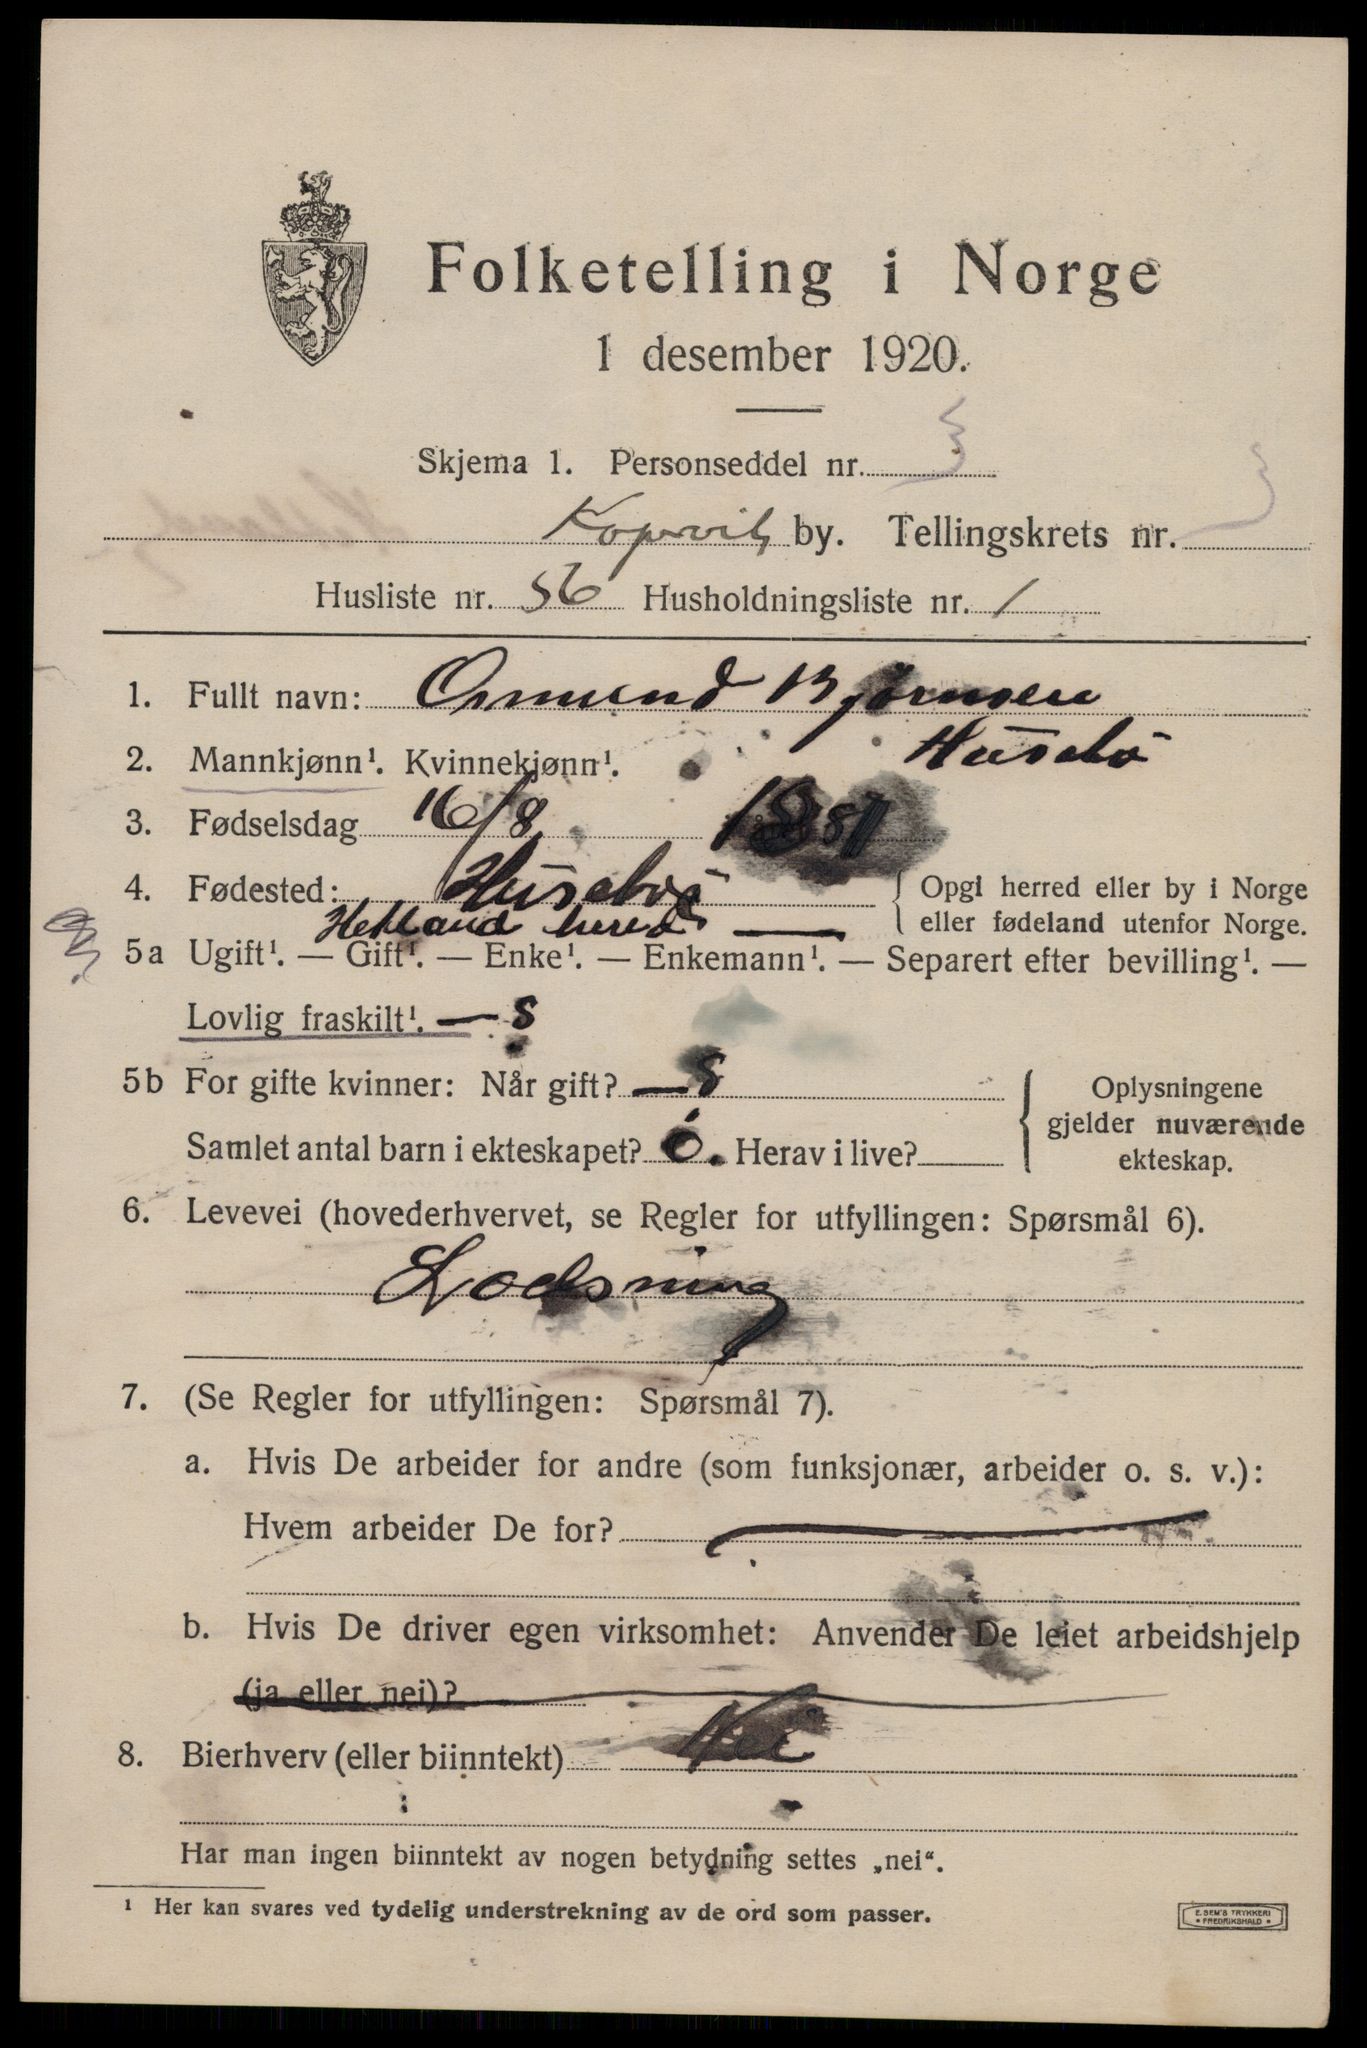 Folketelling i Norge
1 desember 1920.
Skjema 1. Personseddel nr. 3
Kopervik by. Tellingskrets nr. 3
Husliste nr. 56 Husholdningsliste nr. 1
1. Fullt navn: Osmund Bjørnsen
Husebø
2. Mannkjønn¹. Kvinnekjønn¹.
3. Fødselsdag 16/8
4. Fødested: Husebø { Opgi herred eller by i Norge
Hetland hered eller fødeland utenfor Norge.
5a Ugift¹. — Gift¹. — Enke¹. — Enkemann¹. — Separert efter bevilling¹. —
Lovlig fraskilt¹.
5b For gifte kvinner: Når gift? Oplysningene
gjelder nuværende
Samlet antal barn i ekteskapet? 0. Herav i live?
ekteskap.
6. Levevei (hovederhvervet, se Regler for utfyllingen: Spørsmål 6).
Lodsning
7. (Se Regler for utfyllingen: Spørsmål 7).
a. Hvis De arbeider for andre (som funksjonær, arbeider o. s. v.):
Hvem arbeider De for?
b. Hvis De driver egen virksomhet: Anvender De leiet arbeidshjelp
(ja eller nei)?
8. Bierhverv (eller biinntekt) Nei
Har man ingen biinntekt av nogen betydning settes „nei“.
¹ Her kan svares ved tydelig understrekning av de ord som passer.
E. SEM'S TRYKKERI
FREDRIKSHALD